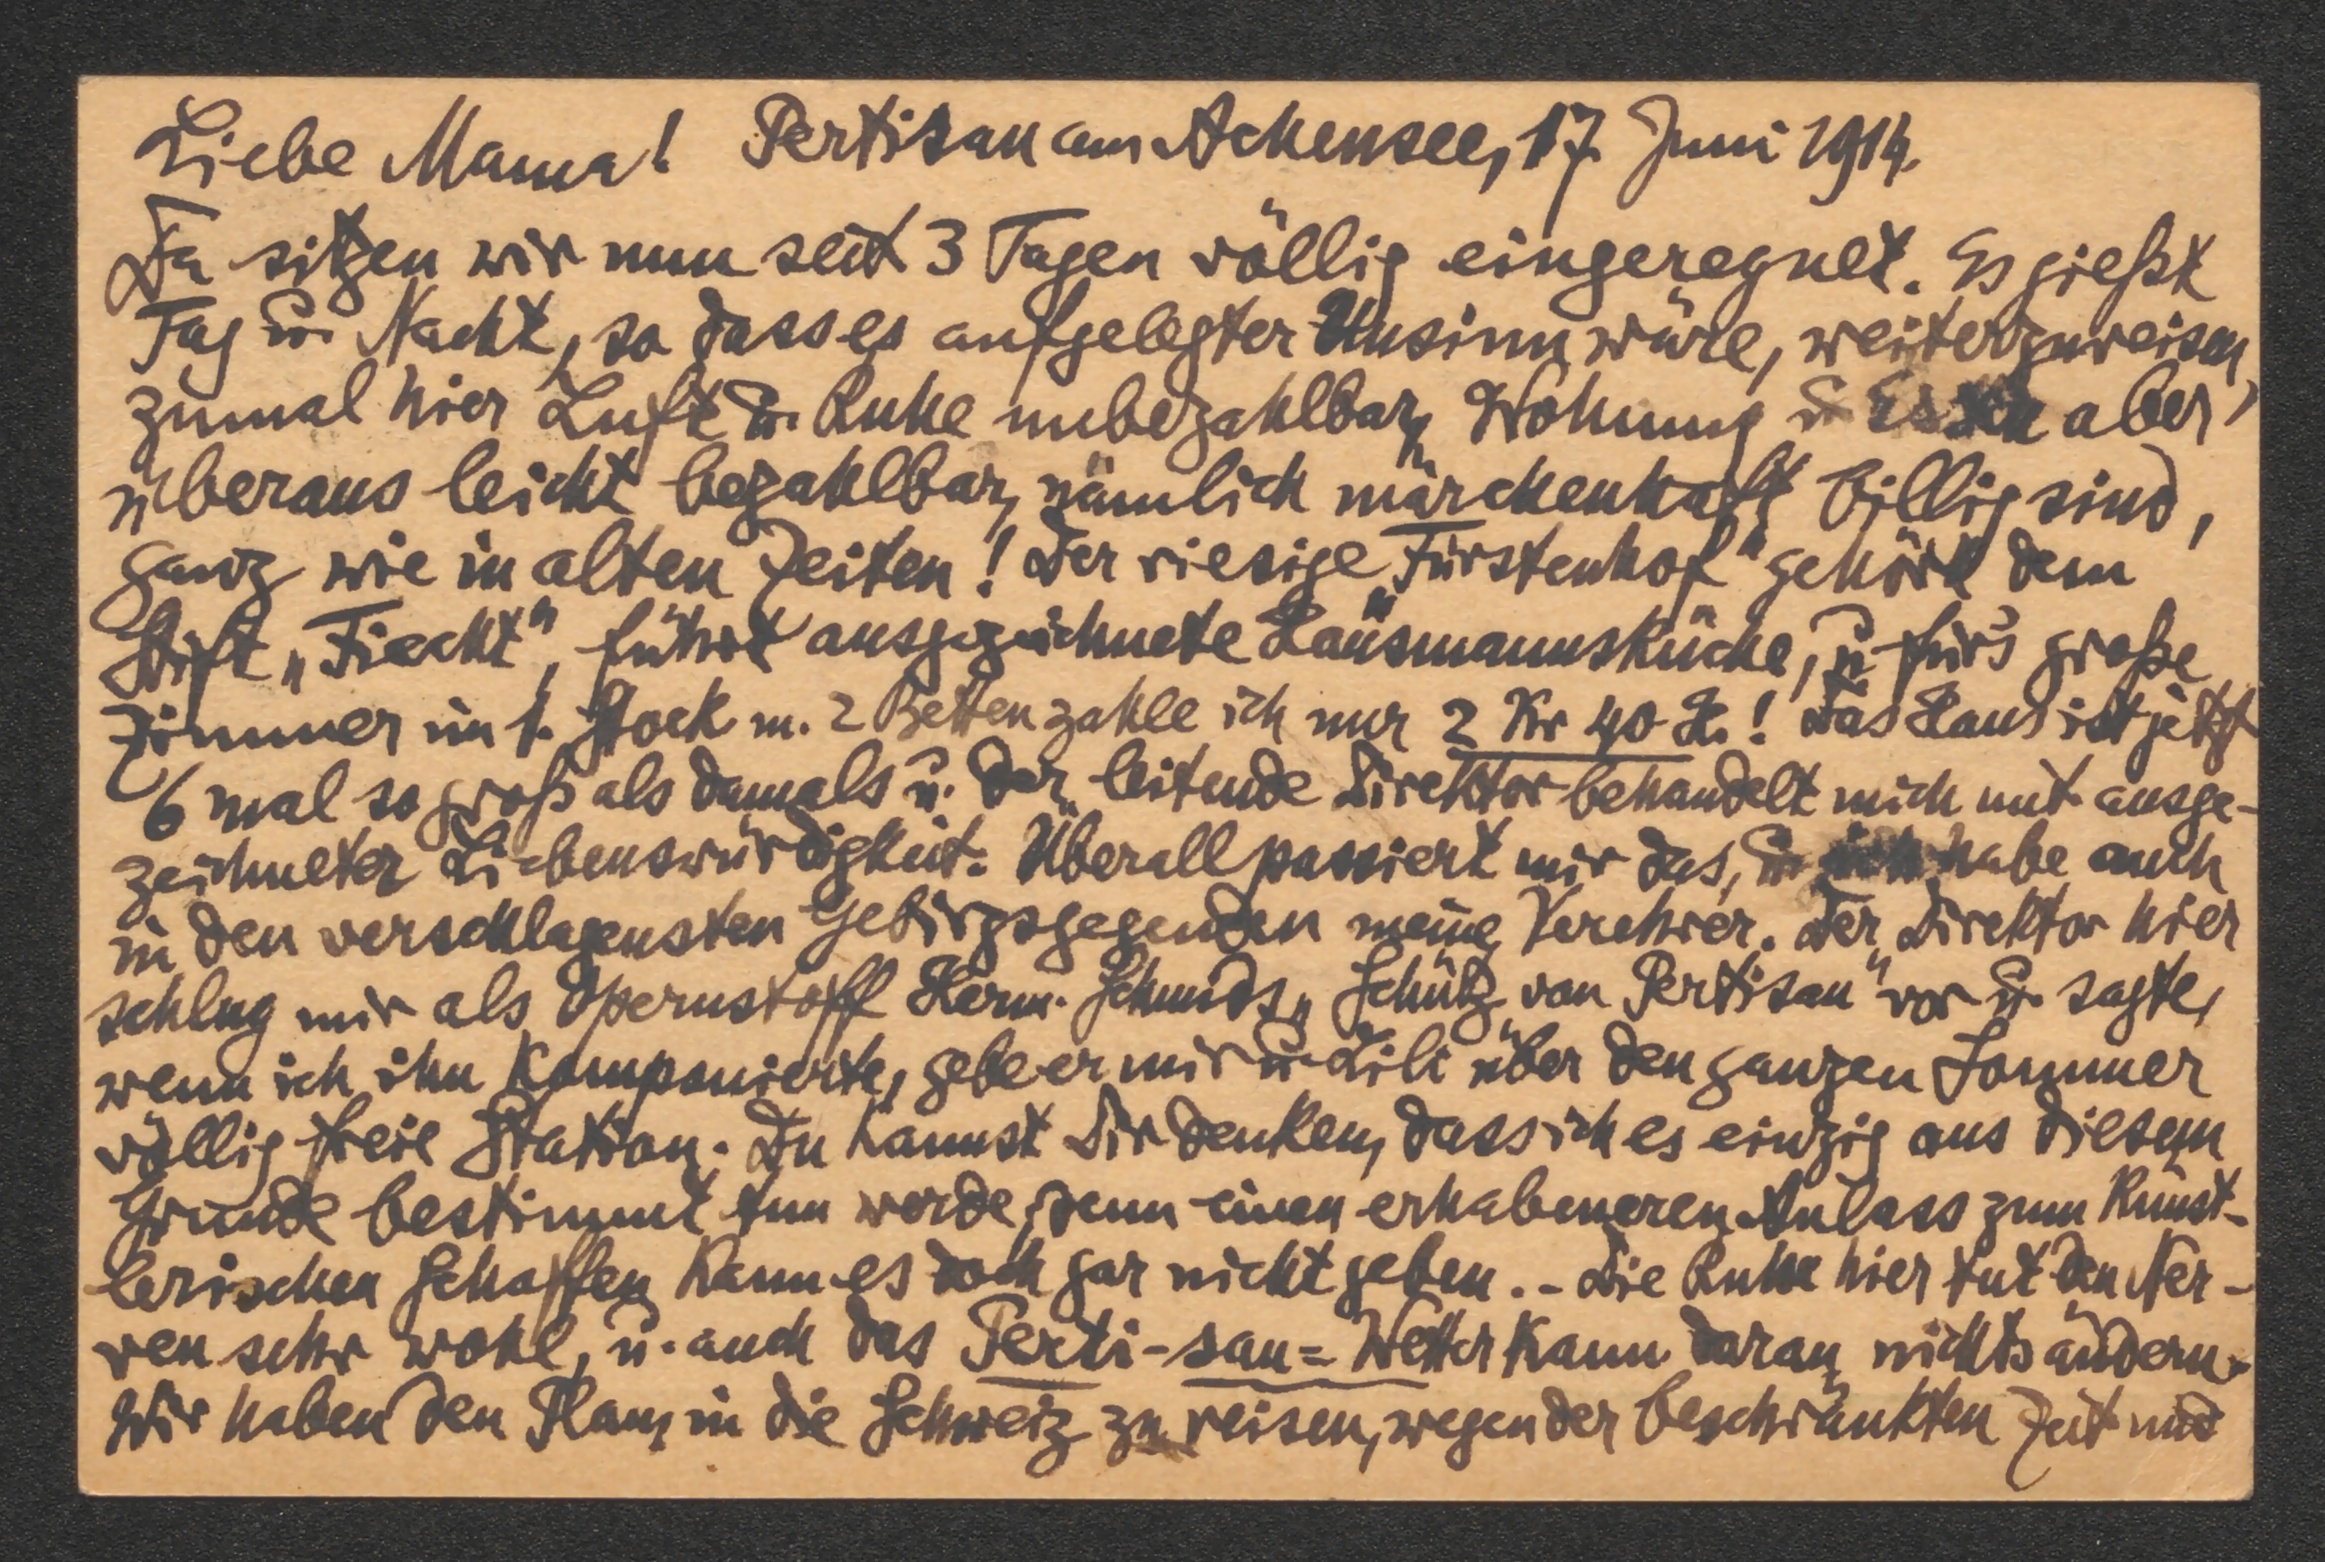 Liebe Mama! Pertisau am Achensee, 17. Juni 1914.
Da sitzen wir nun seit 3 Tagen völlig eingeregnet. Es gießt
Tag u. Nacht, so dass es aufgelegter Unsinn wäre, weiterzureisen,
zumal hier Luft u. Ruhe unbezahlbar, Wohnung u. Essen aber
überaus leicht bezahlbar, nämlich märchenhaft billig sind,
ganz wie in alten Zeiten! Der riesige „Fürstenhof" gehört dem
Stift „Fiecht", führt ausgezeichnete Hausmannsküche, u. fürs große
Zimmer im 1. Stock m. 2 Betten zahle ich nur 2 Kr 40 H.! Das Haus ist jetzt
6 mal so groß als damals u. der leitende Direktor behandelt mich mit ausge-
zeichneter Liebenswürdigkeit. Überall passiert mir das, u. ich habe auch
in den verschlagensten Gebirgsgegenden meine Verehrer. Der Direktor hier
schlug mir als Opernstoff Herm. Schmids „Schütz von Pertisau" vor u. sagte,
wenn ich ihn komponierte, gebe er mir u. Lili über den ganzen Sommer
völlig freie Station. Du kannst Dir denken, dass ich es einzig aus diesem
Grunde bestimmt tun werde, denn einen erhabeneren Anlass zum künst-
lerischen Schaffen kann es doch gar nicht geben. - Die Ruhe hier tut den Ner-
ven sehr wohl, u. auch das Perti-sau=Wetter kann daran nichts ändern.
Wir haben den Plan, in die Schweiz zu reisen, wegen der beschränkten Zeit und